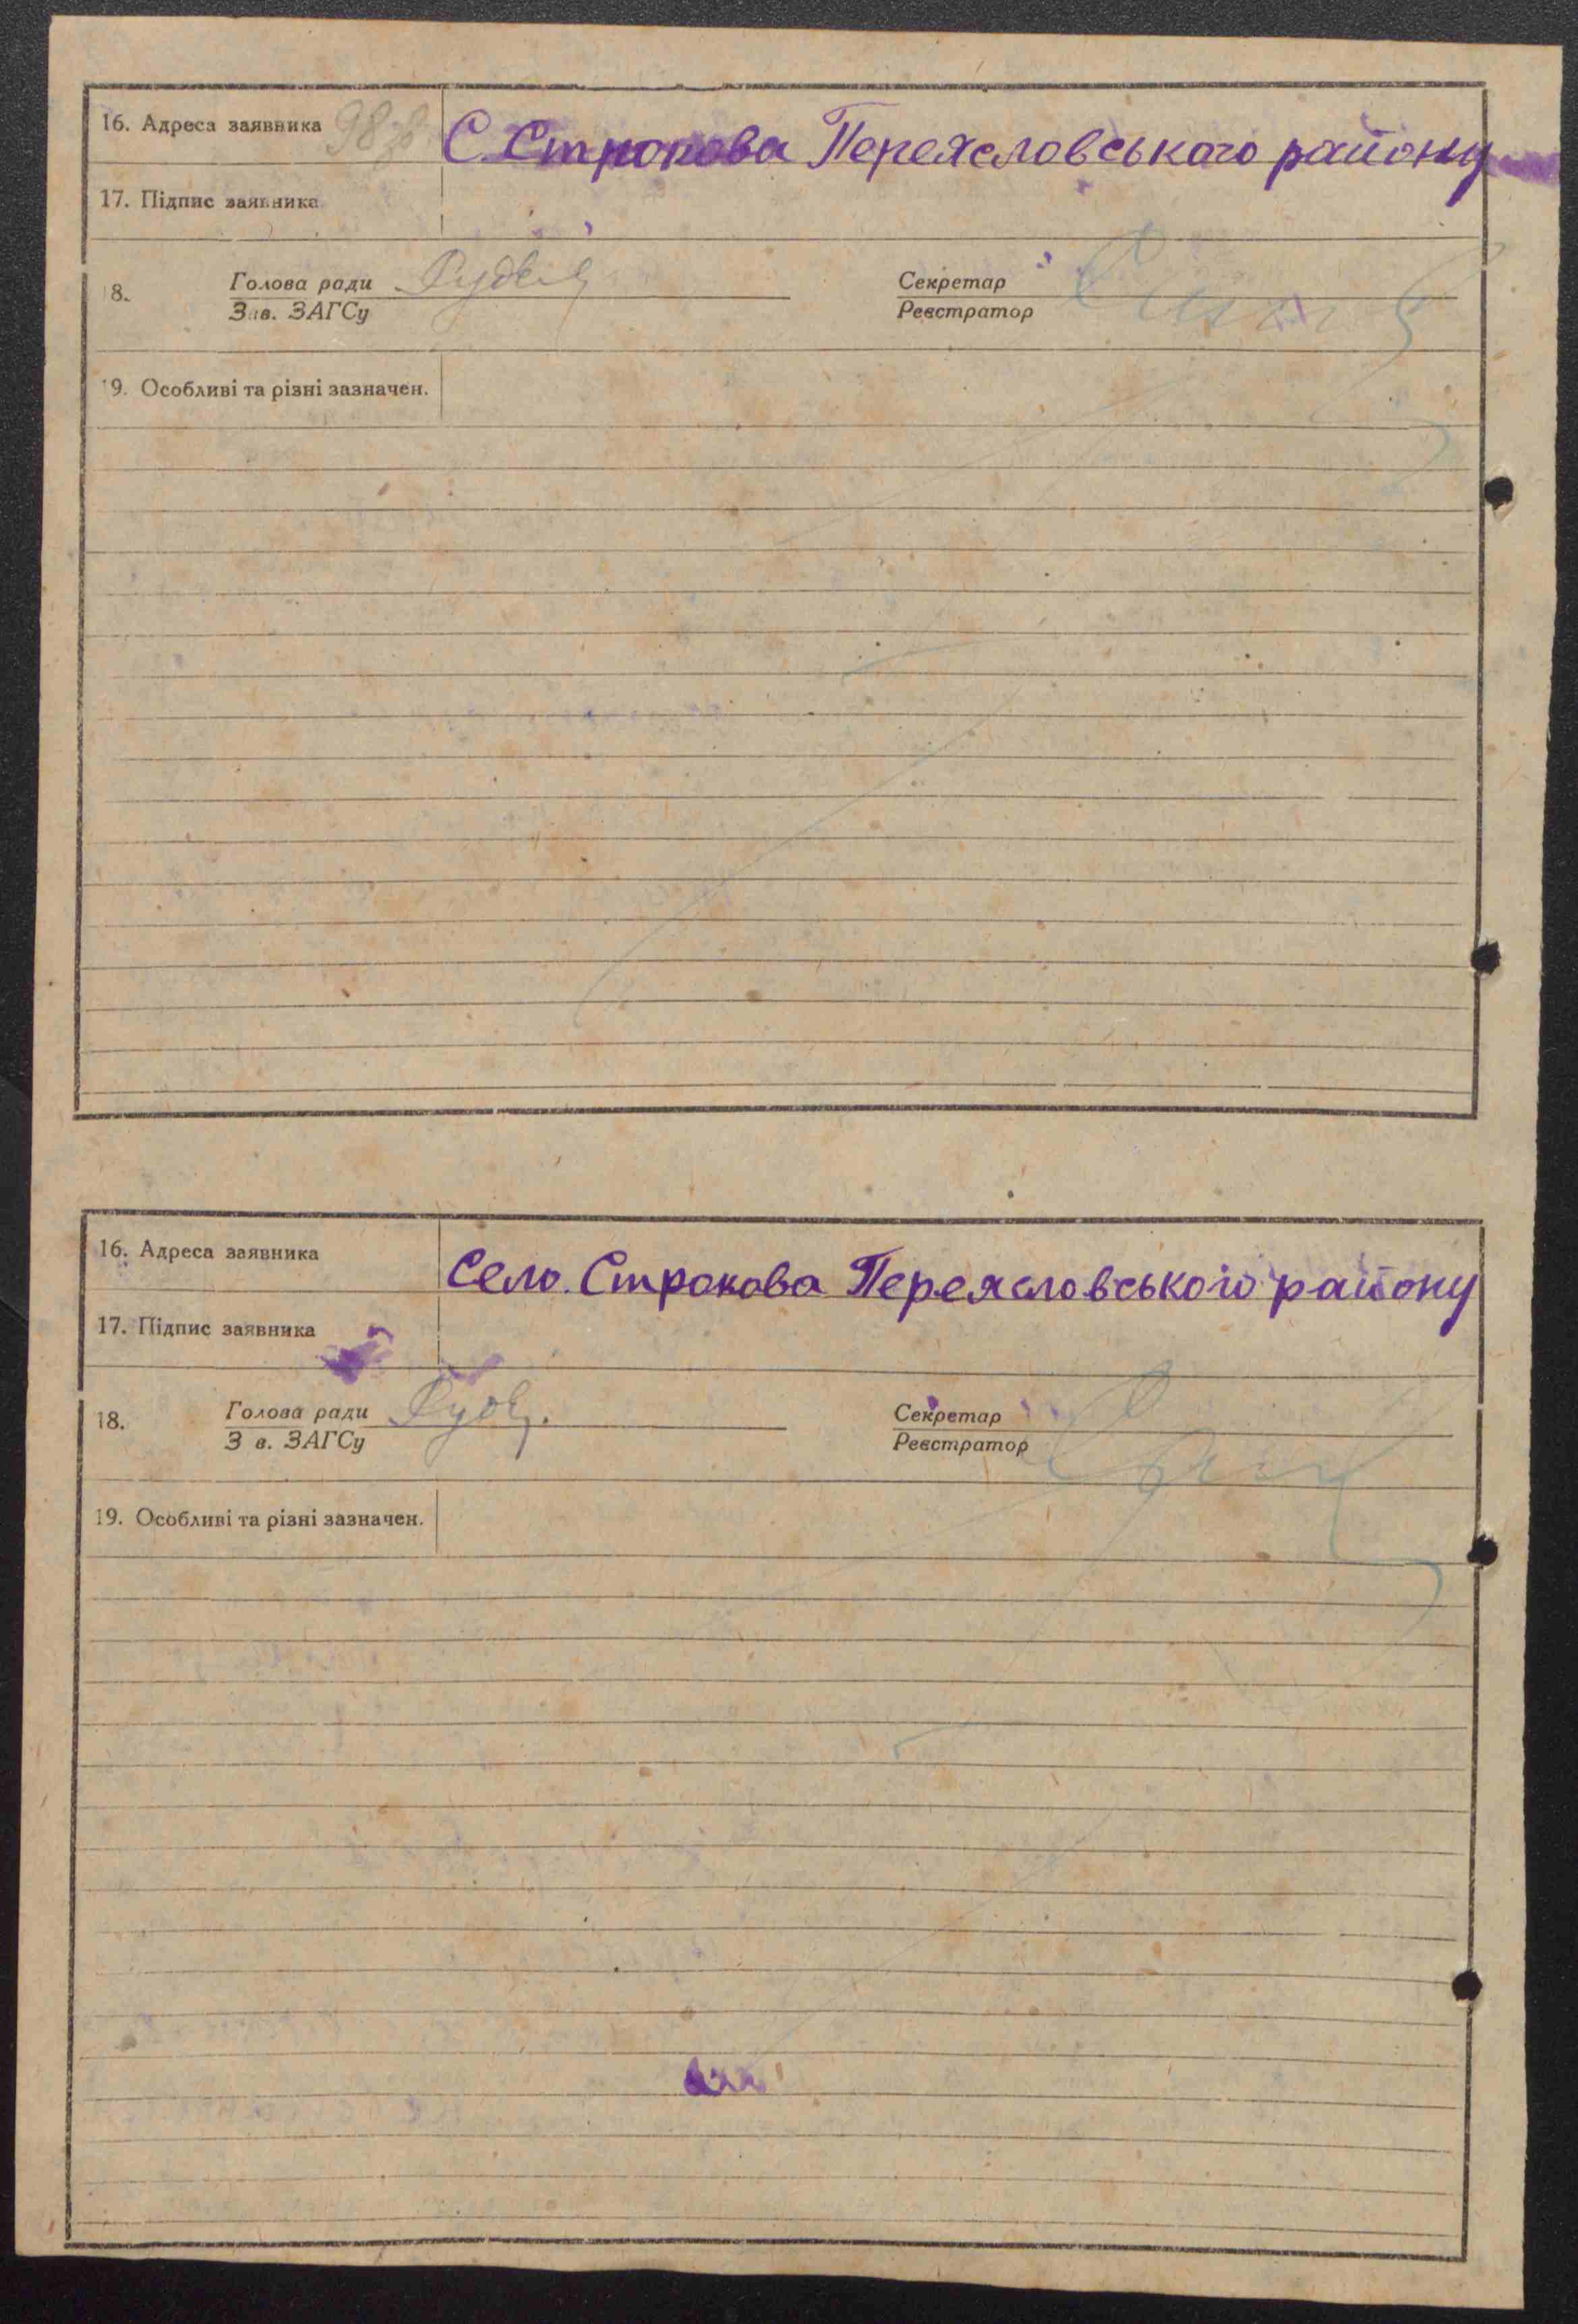 16. Адреса заявника С. Строкова Переясловського району
17. Підпис заявника
18. Голова ради Секретар
Зав. ЗАГСу Реєстратор
19. Особливі та різні зазначен.
16. Адреса заявника Село. Строкова Переясловського району
17. Підпис заявника
18. Голова ради Секретар
З в. ЗАГСу Реєстратор
19. Особливі та різні зазначен.